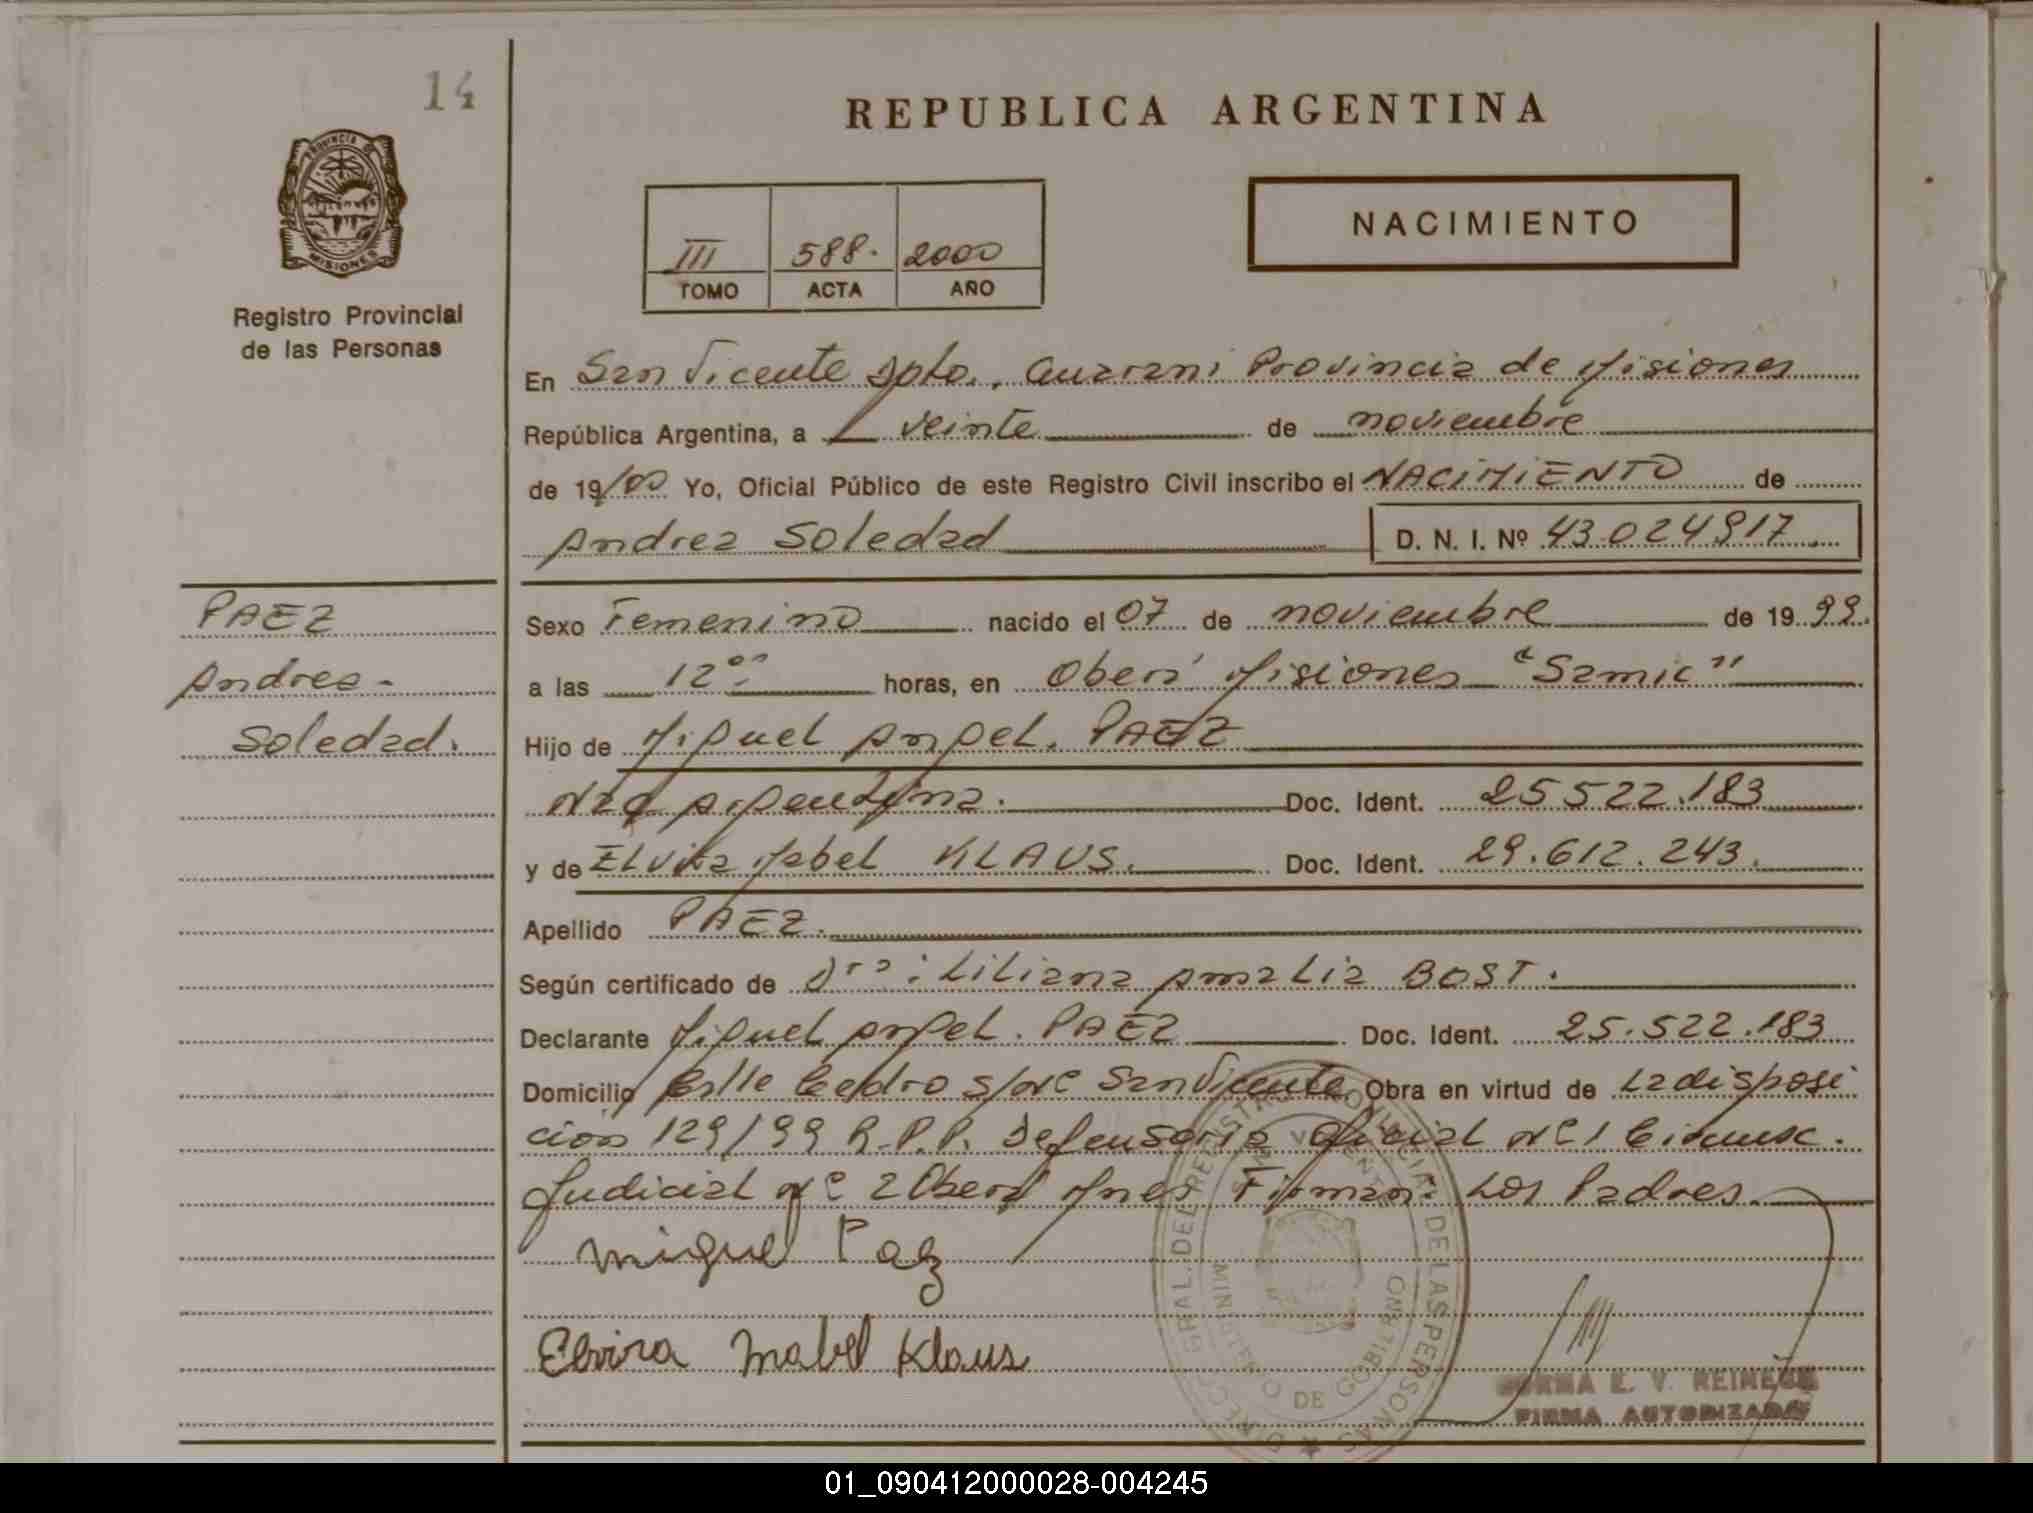 14
REPUBLICA ARGENTINA
PROVINCIA DE
MISIONES
NACIMIENTO
III 588. 2000
TOMO ACTA AÑO
Registro Provincial
de las Personas
En San Vicente Dpto., Guarani Provincia de Misiones
República Argentina, a veinte de noviembre
de 19/00 Yo, Oficial Público de este Registro Civil inscribo el NACIMIENTO de
Andrea Soledad D. N. I. Nº 43.024917
PAEZ
Andrea -
Soledad.
Sexo Femenino nacido el 07 de noviembre de 1999.
a las 12 00 horas, en Oberá Misiones "Samic"
Hijo de Miguel Angel. PAEZ
Nac Argentina. Doc. Ident. 25522.183
y de Elvira Mabel KLAUS. Doc. Ident. 29.612.243.
Apellido PAEZ.
Según certificado de Dra: Liliana Amalia BOST.
Declarante Miguel Angel. PAEZ Doc. Ident. 25.522.183
Domicilio Calle Cedro s/Nº San Vicente Obra en virtud de La disposi
cion 129/99 R.P.P. Defensoria Oficial Nº 1 Circunsc.
Judicial Nº 2 Oberá Mnes Firman: Los Padres
Miguel Paez
Elvira Mabel Klaus
DIRECC. GRAL. DEL REGISTRO PROVINCIAL DE LAS PERSONAS
SAN VICENTE
MINISTERIO DE GOBIERNO
NORMA E. V. REINECK
FIRMA AUTORIZADA
01_090412000028-004245